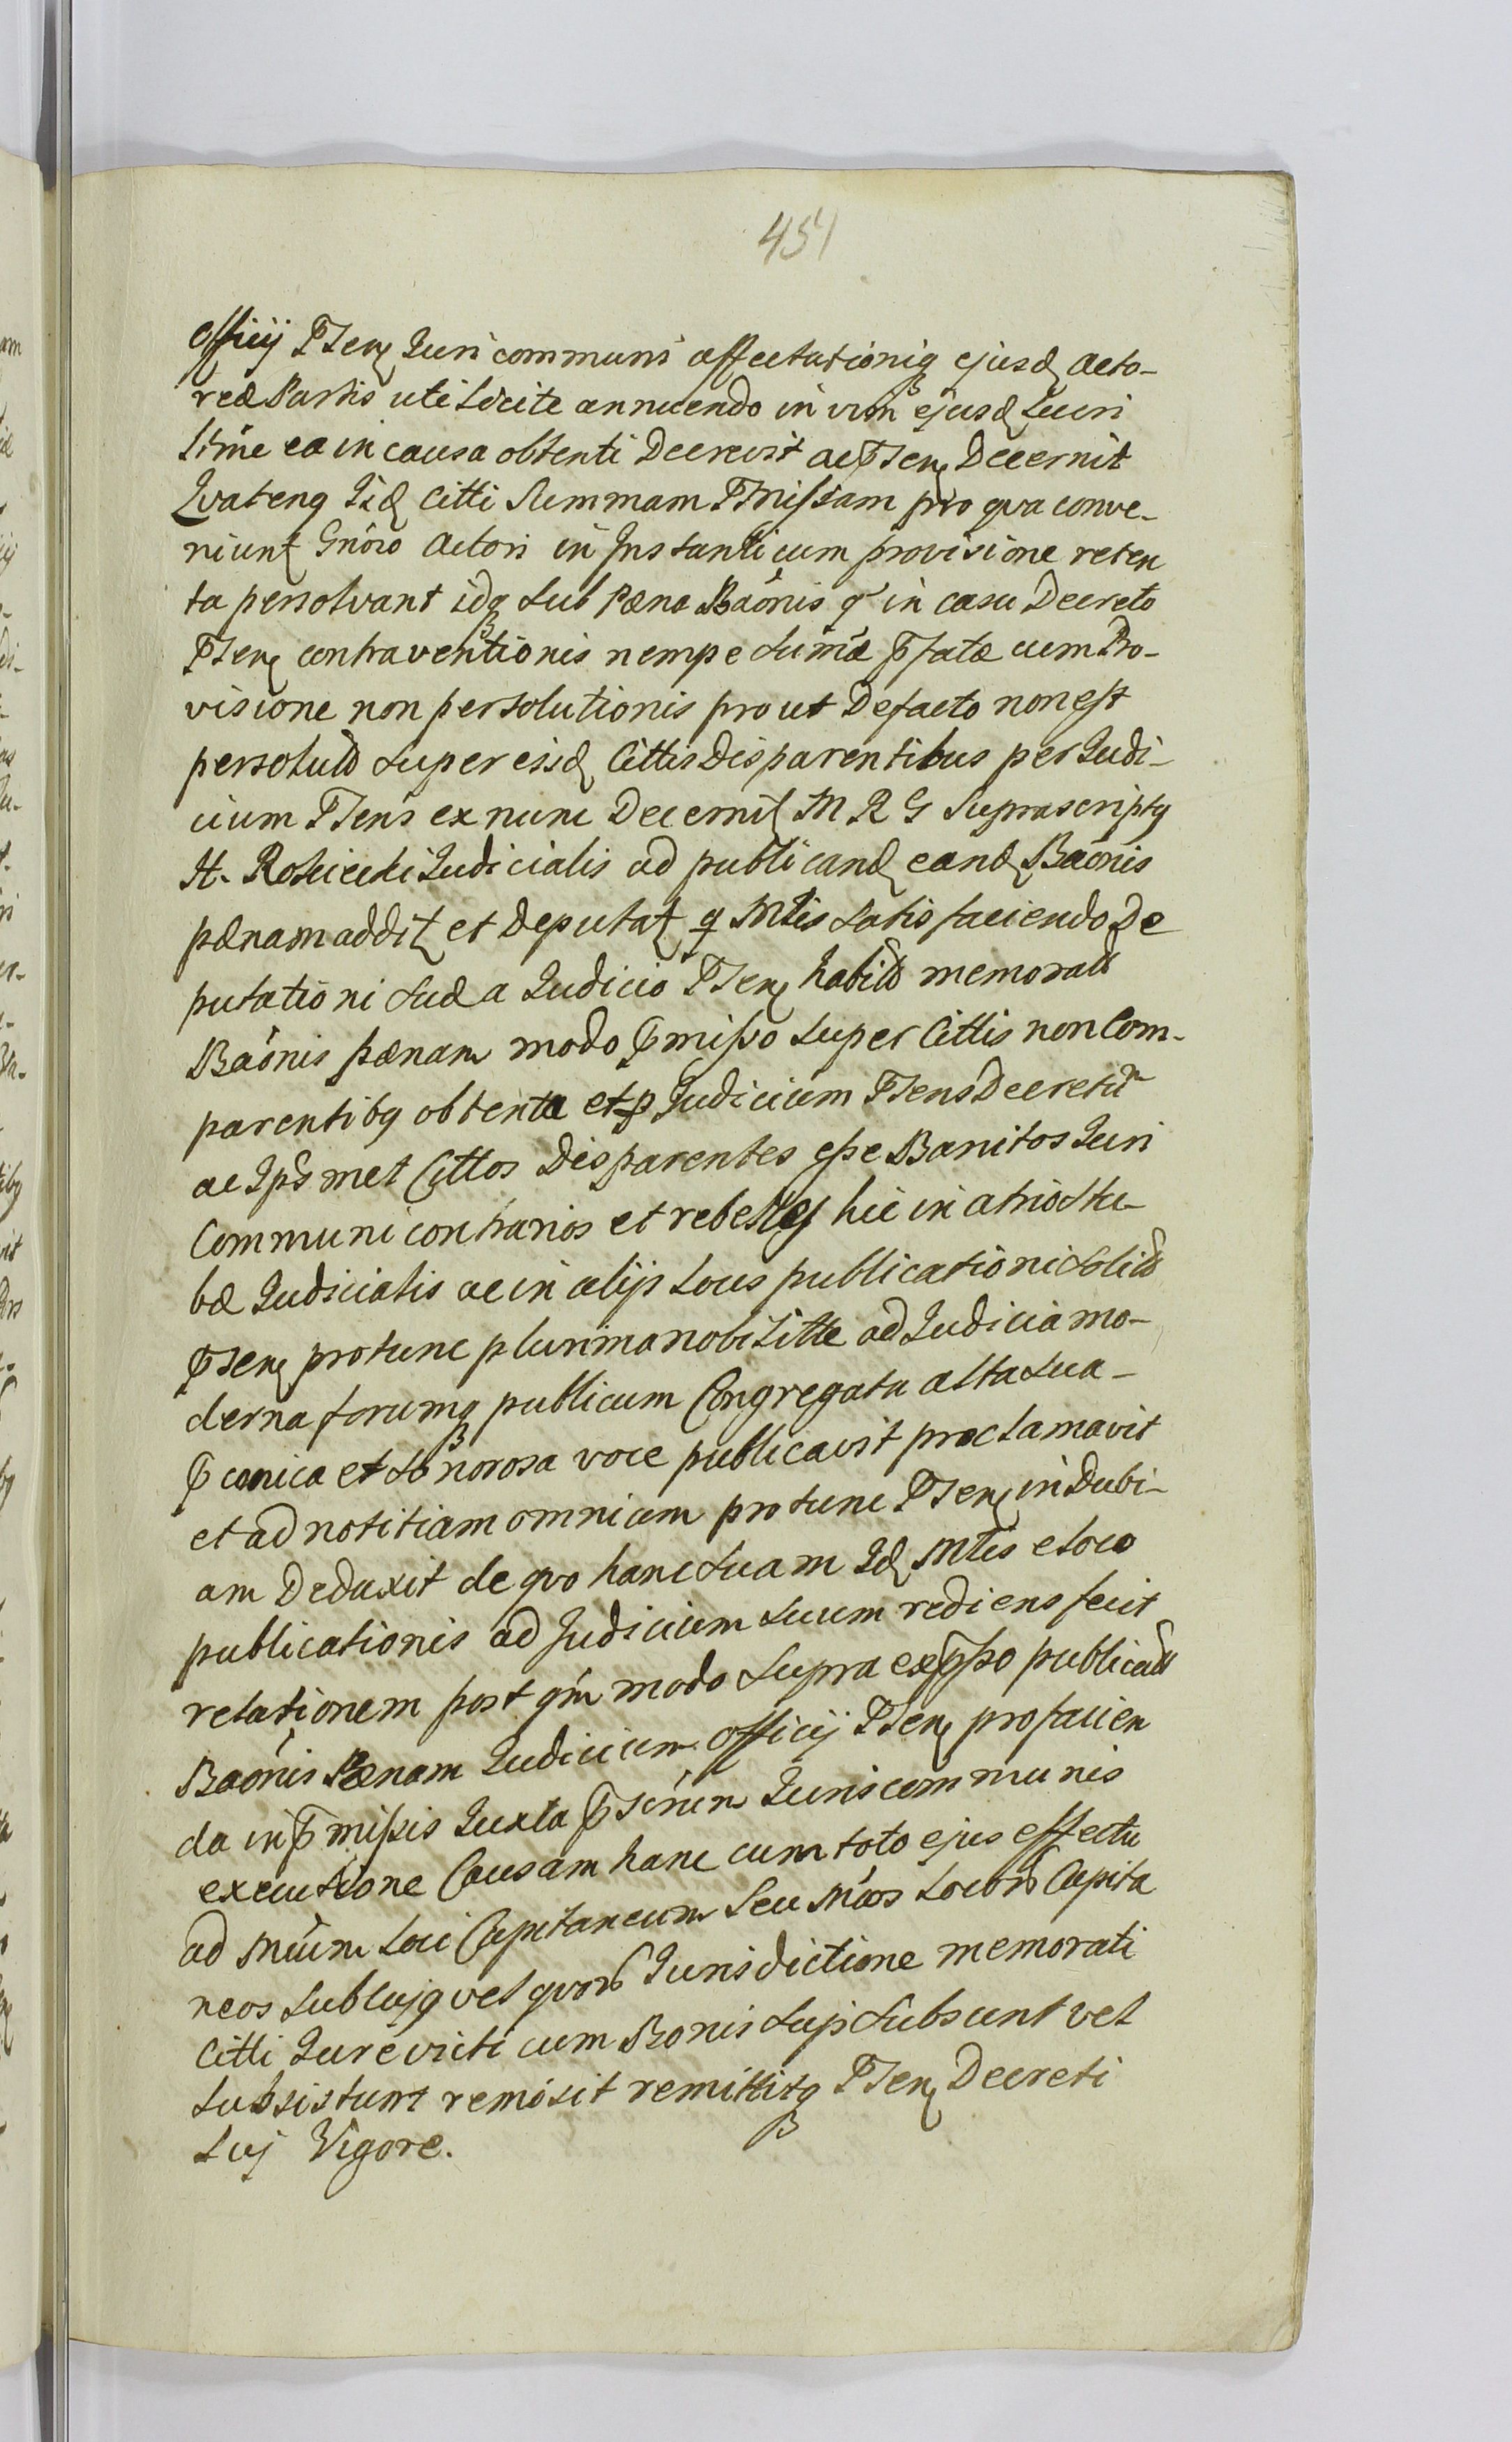 451
officij Psen Juri communi affectationiq ejusd Acto-
reæ Partis uti Licite annuendo in vim ejusd Luri
ltme ea in causa obtenti Decrevit ac Psen Decernit
Qvateng Iid Citti Summam Pmissam pro qva conve-
niunt Gnöso Actori in Instanti cum provisione reten
ta persolvant idq sub Pæna Baönis q in casu Decreto
Psen contraventionis nempe Sumæ Pfatæ cum Pro-
visione non persolutionis prout Defacto non est
persoluta super eisd Cittis Disparentibus per Judi-
cium Psens ex nunc Decernit M R G Suprascriptq
H. Rosiecki Judicialis ad publicand eand Baönis
pænam addit et Deputat q Mtis satis faciendo De
putationi suæ a Judicio Psen habita memorata
Baönis pænam modo pmisso super Cittis non Com-
parentibq obtenta et p Judicium Psens Decretã
ac Ips met Cittos Disparentes esse Banitos Juri
Communi contrarios et rebelles hic in atrio stu-
bæ Judicialis ac in alijs Locis publicationi solitis
Psen protunc plurima nobilitte ad Judicia mo-
derna forumq publicum Congregata alta sua-
p conica et sonorosa voce publicavit proclamavit
et ad notitiam omnium protunc Psen in Dubi-
am Deduxit de qvo hanc suam Id Mtis e loco
publicationis ad Judicium suum rediens fecit
relationem post qm modo supra expsso publicata
Baönis Pænam Judicium officij Psen pro facien
da in pmissis Juxta pscrum Juris communis
executione Causam hanc cum toto ejus effectu
ad Mcum Loci Capitaneum Seu Mcos Locor Capita
neos sub cujq vel qvor Jurisdictione memorati
Citti Jure victi cum Bonis suis subsunt vel
subsistunt remisit remittitq Psen Decreti
sui Vigore.